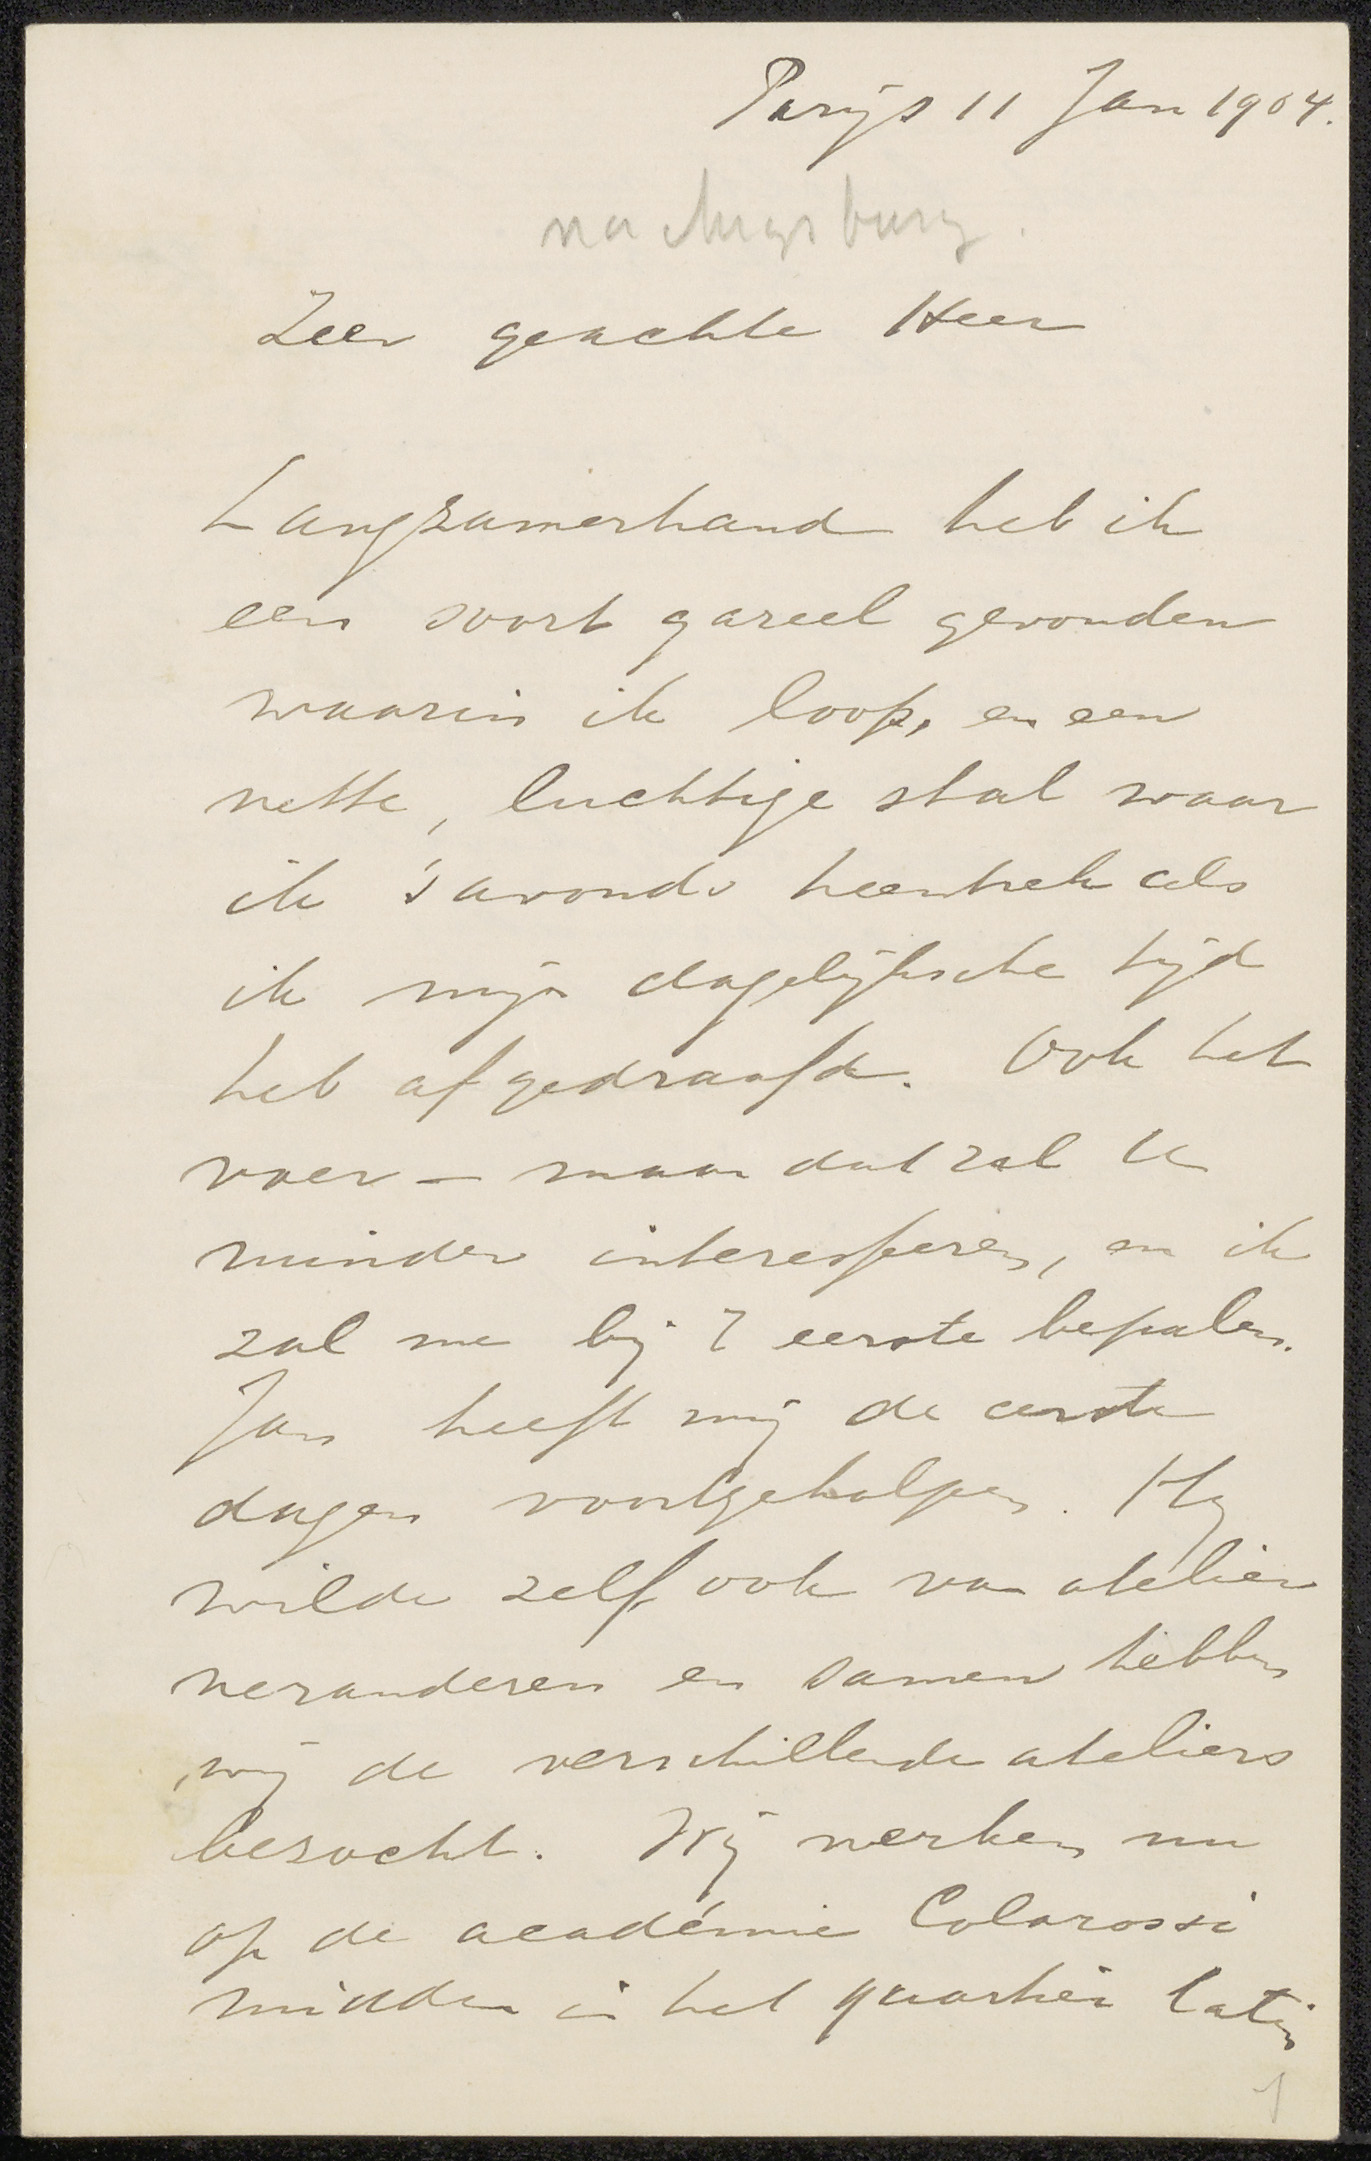 Parijs 11 Jan 1904.
Zeer geachte Heer
Langzamerhand heb ik
een soort gareel gevonden
waarin ik loop, en een
nette, luchtige stal waar
ik 's avonds heentrek als
ik mijn dagelijksche tijd
heb afgedraafd. Ook het
voer – maar dat zal U
minder interesseren, en ik
zal me bij 't eerste bepalen.
Jan heeft mij de eerste
dagen voortgeholpen. Hij
wilde zelf ook van atelier
veranderen en samen hebben
wij de verschillende ateliers
bezocht. Wij werken nu
op de académie Colarossi
midden in het quartier latin
1